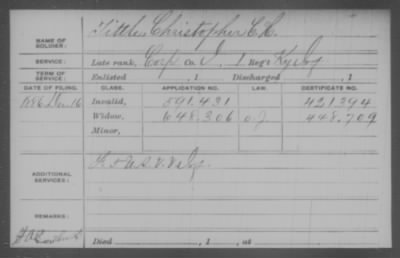 NAME OF SOLDIER: Tittle, Christopher C.
SERVICE: Late rank, Corp Co. I, 1 Reg't Ky.
TERM OF SERVICE: Enlisted , 1 Discharged , 1
DATE OF FILING. CLASS. APPLICATION NO. LAW. CERTIFICATE NO.
1886 Dec. 16 Invalid, 591.431 421394
Widow, 648.306 448.709
Minor,
ADDITIONAL SERVICES: U.S.V.
REMARKS:
Died , 1 , at